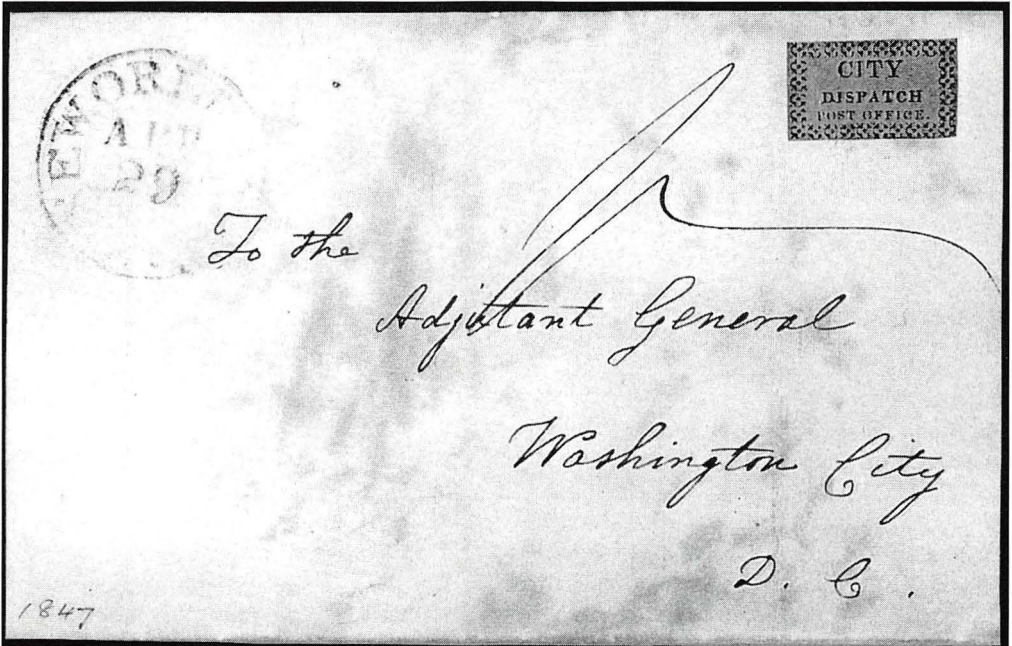 EWORLE
APR
29
CITY
DISPATCH
POST OFFICE.
To the
Adjutant General
Washington City
D. C.
1847